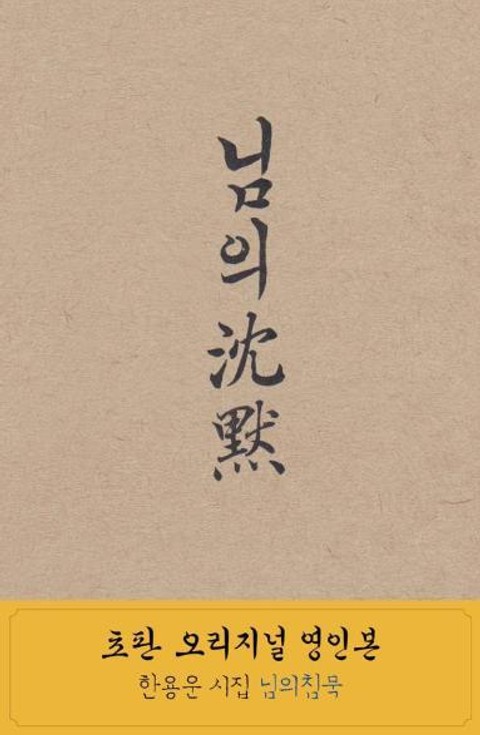 님의沈默
초판 오리지널 영인본
한용운 시집 님의침묵